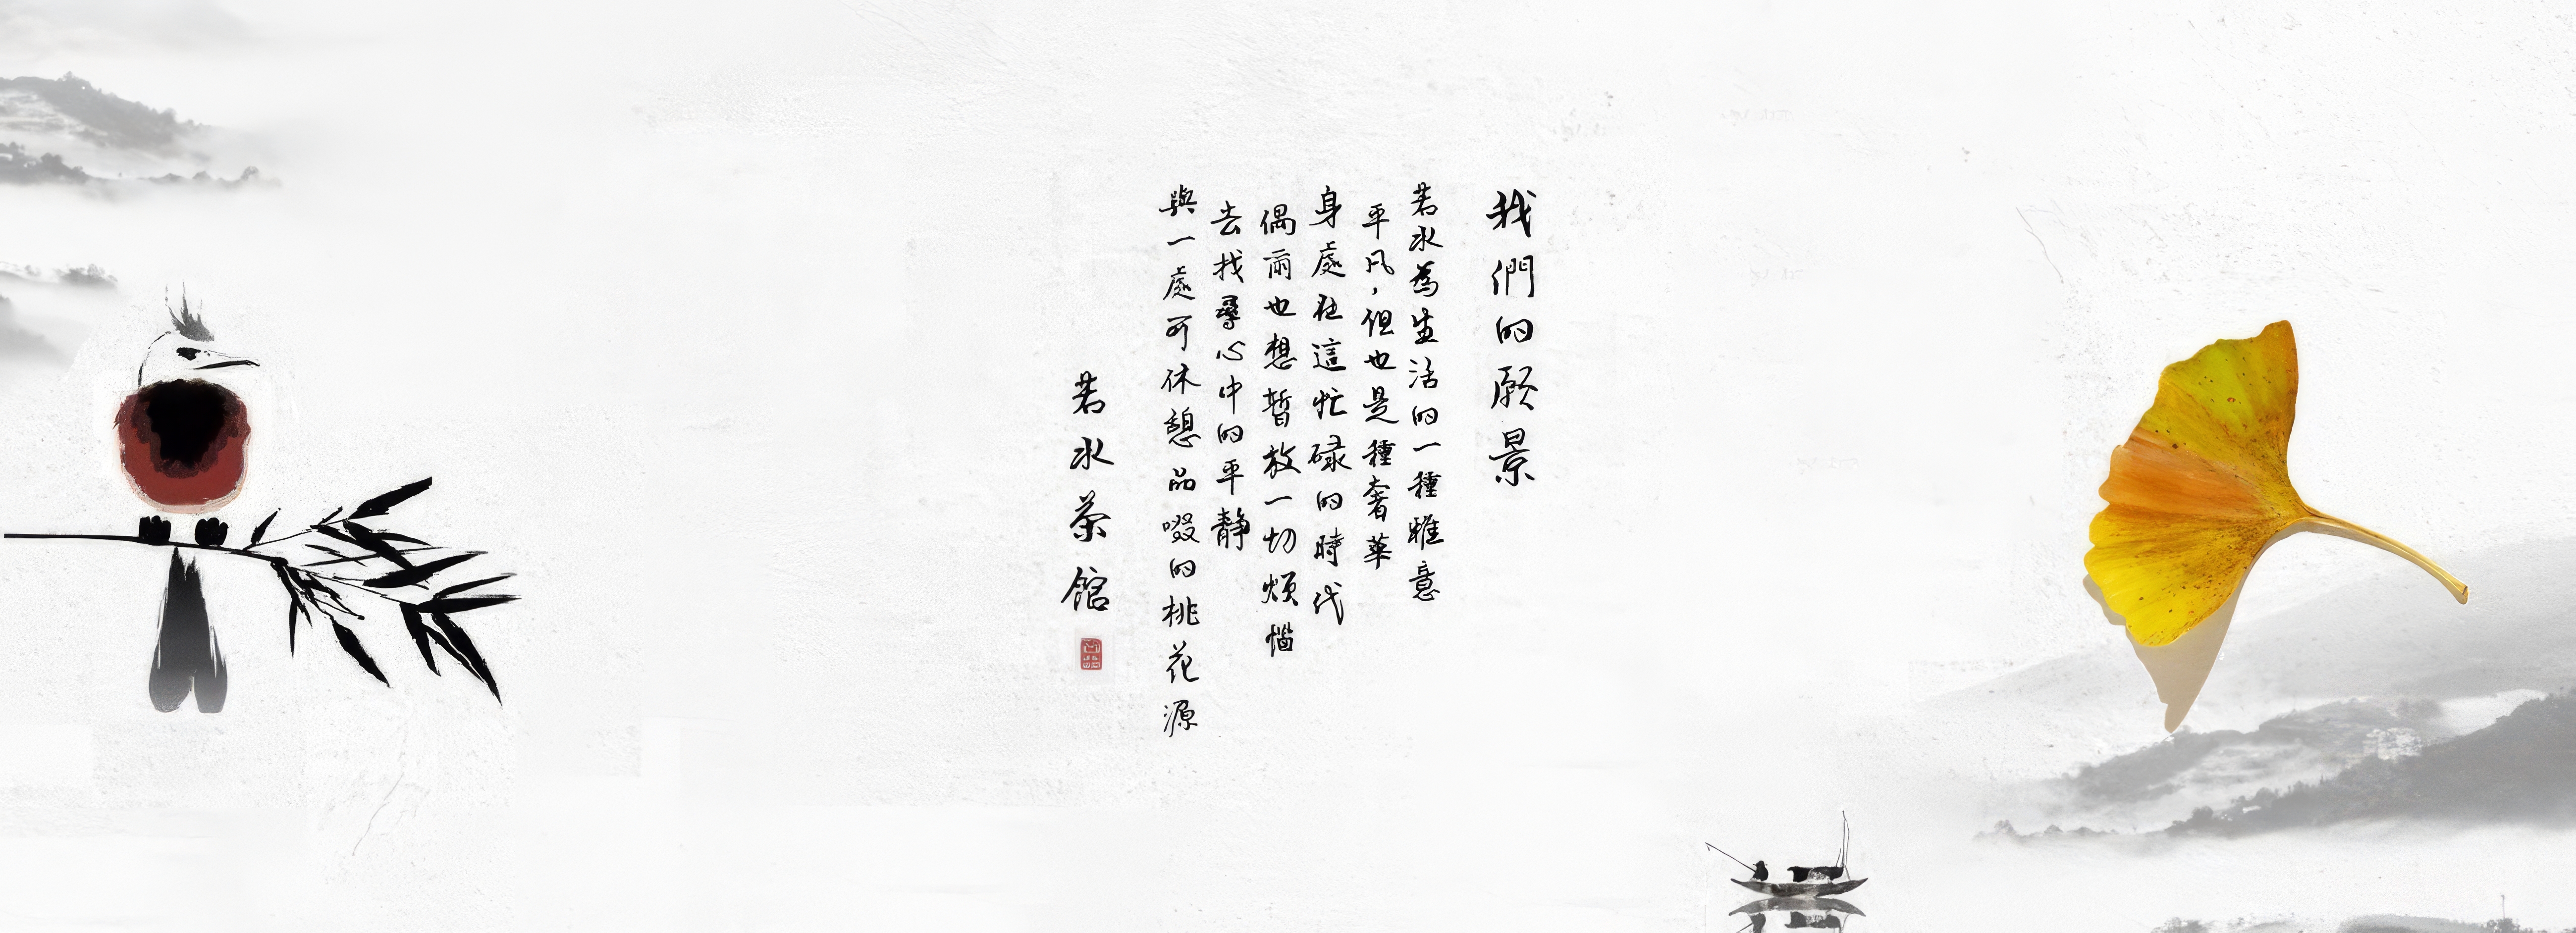 我們的願景
若水為生活的一種雅意
平凡，但也是種奢華
身處在這忙碌的時代
偶爾也想暫放一切煩惱
去找尋心中的平靜
與一處可休憩品啜的桃花源
若水茶館